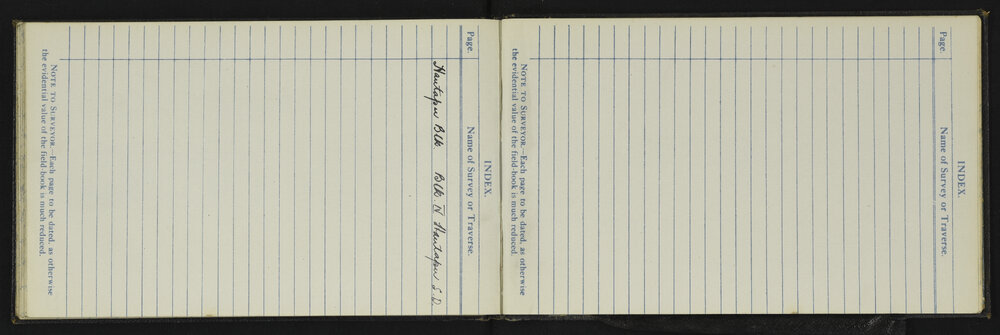 INDEX.
Page. Name of Survey or Traverse.
Hautapu Blk. Blk. IV Hautapu S.D.
NOTE TO SURVEYOR.—Each page to be dated, as otherwise
the evidential value of the field-book is much reduced.
INDEX.
Page. Name of Survey or Traverse.
NOTE TO SURVEYOR.—Each page to be dated, as otherwise
the evidential value of the field-book is much reduced.